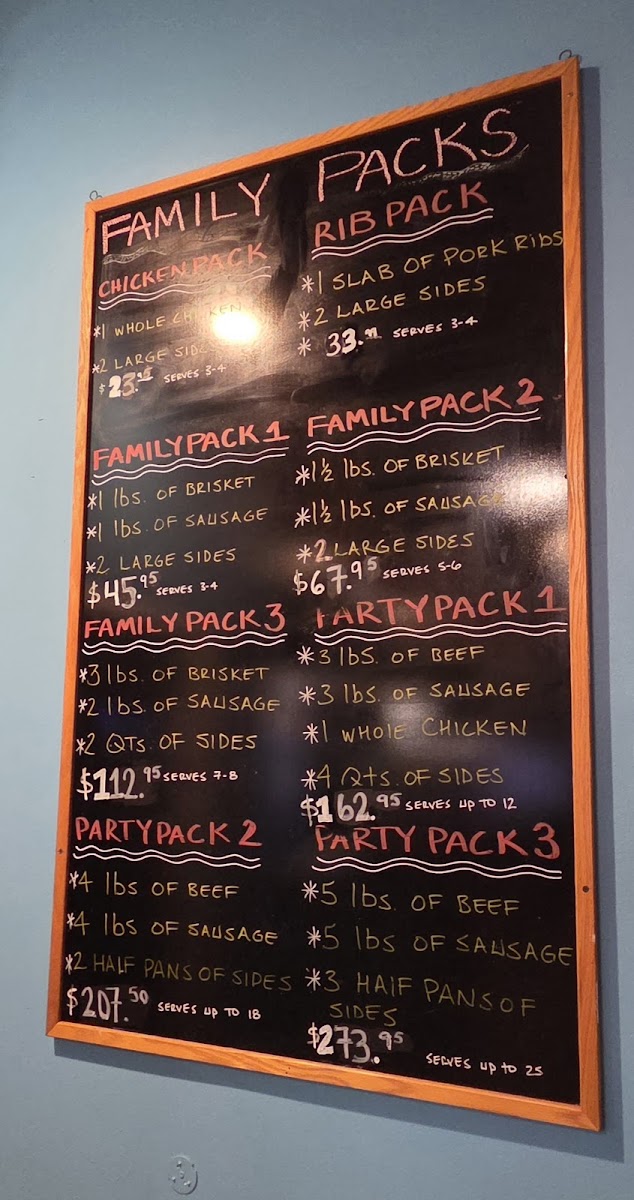 FAMILY PACKS
CHICKEN PACK
*1 WHOLE CHICKEN
*2 LARGE SIDES
$23. SERVES 3-4
RIB PACK
*1 SLAB OF PORK RIBS
*2 LARGE SIDES
* 33. SERVES 3-4
FAMILY PACK 1
*1 lbs. OF BRISKET
*1 lbs. OF SAUSAGE
*2 LARGE SIDES
$45.95 SERVES 3-4
FAMILY PACK 2
*1½ lbs. OF BRISKET
*1½ lbs. OF SAUSAGE
*2 LARGE SIDES
$67.95 SERVES 5-6
FAMILY PACK 3
*3 lbs. OF BRISKET
*2 lbs. OF SAUSAGE
*2 QTS. OF SIDES
$112.95 SERVES 7-8
PARTY PACK 1
*3 lbs. OF BEEF
*3 lbs. OF SAUSAGE
*1 WHOLE CHICKEN
*4 Qts. OF SIDES
$162.95 SERVES UP TO 12
PARTY PACK 2
*4 lbs OF BEEF
*4 lbs OF SAUSAGE
*2 HALF PANS OF SIDES
$207.50 SERVES UP TO 18
PARTY PACK 3
*5 lbs. OF BEEF
*5 lbs OF SAUSAGE
*3 HALF PANS OF
SIDES
$273.95
SERVES UP TO 25